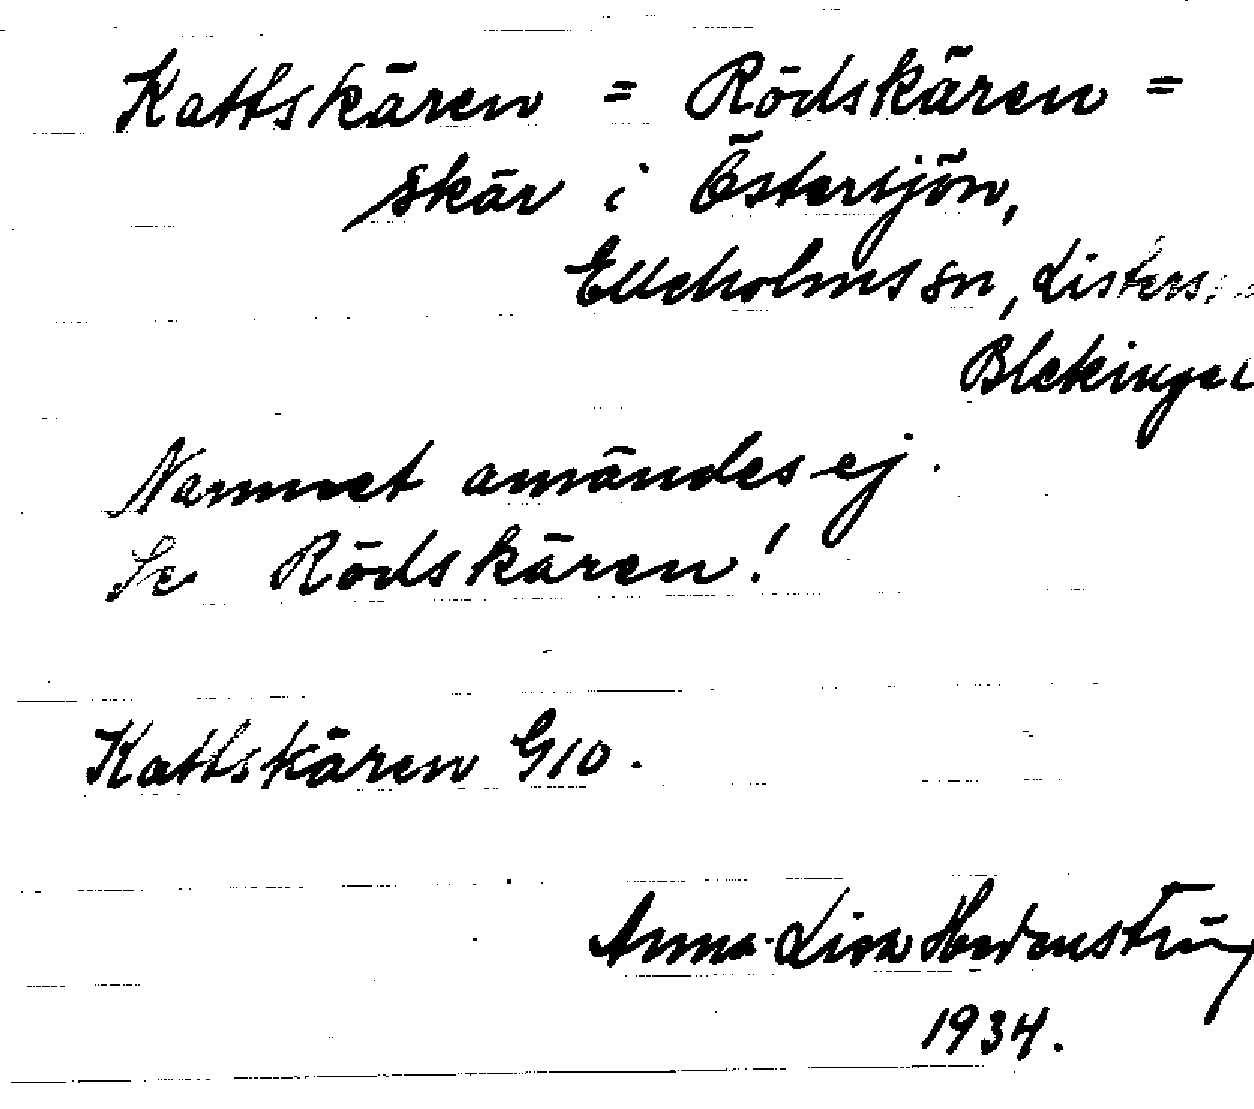 Kattskären = Rödskären =
skär i Östersjön,
Elleholms sn, Listers
Blekinge l
Namnet användes ej.
Se Rödskären!
Kattskären G10.
Anna-Lisa
1934.